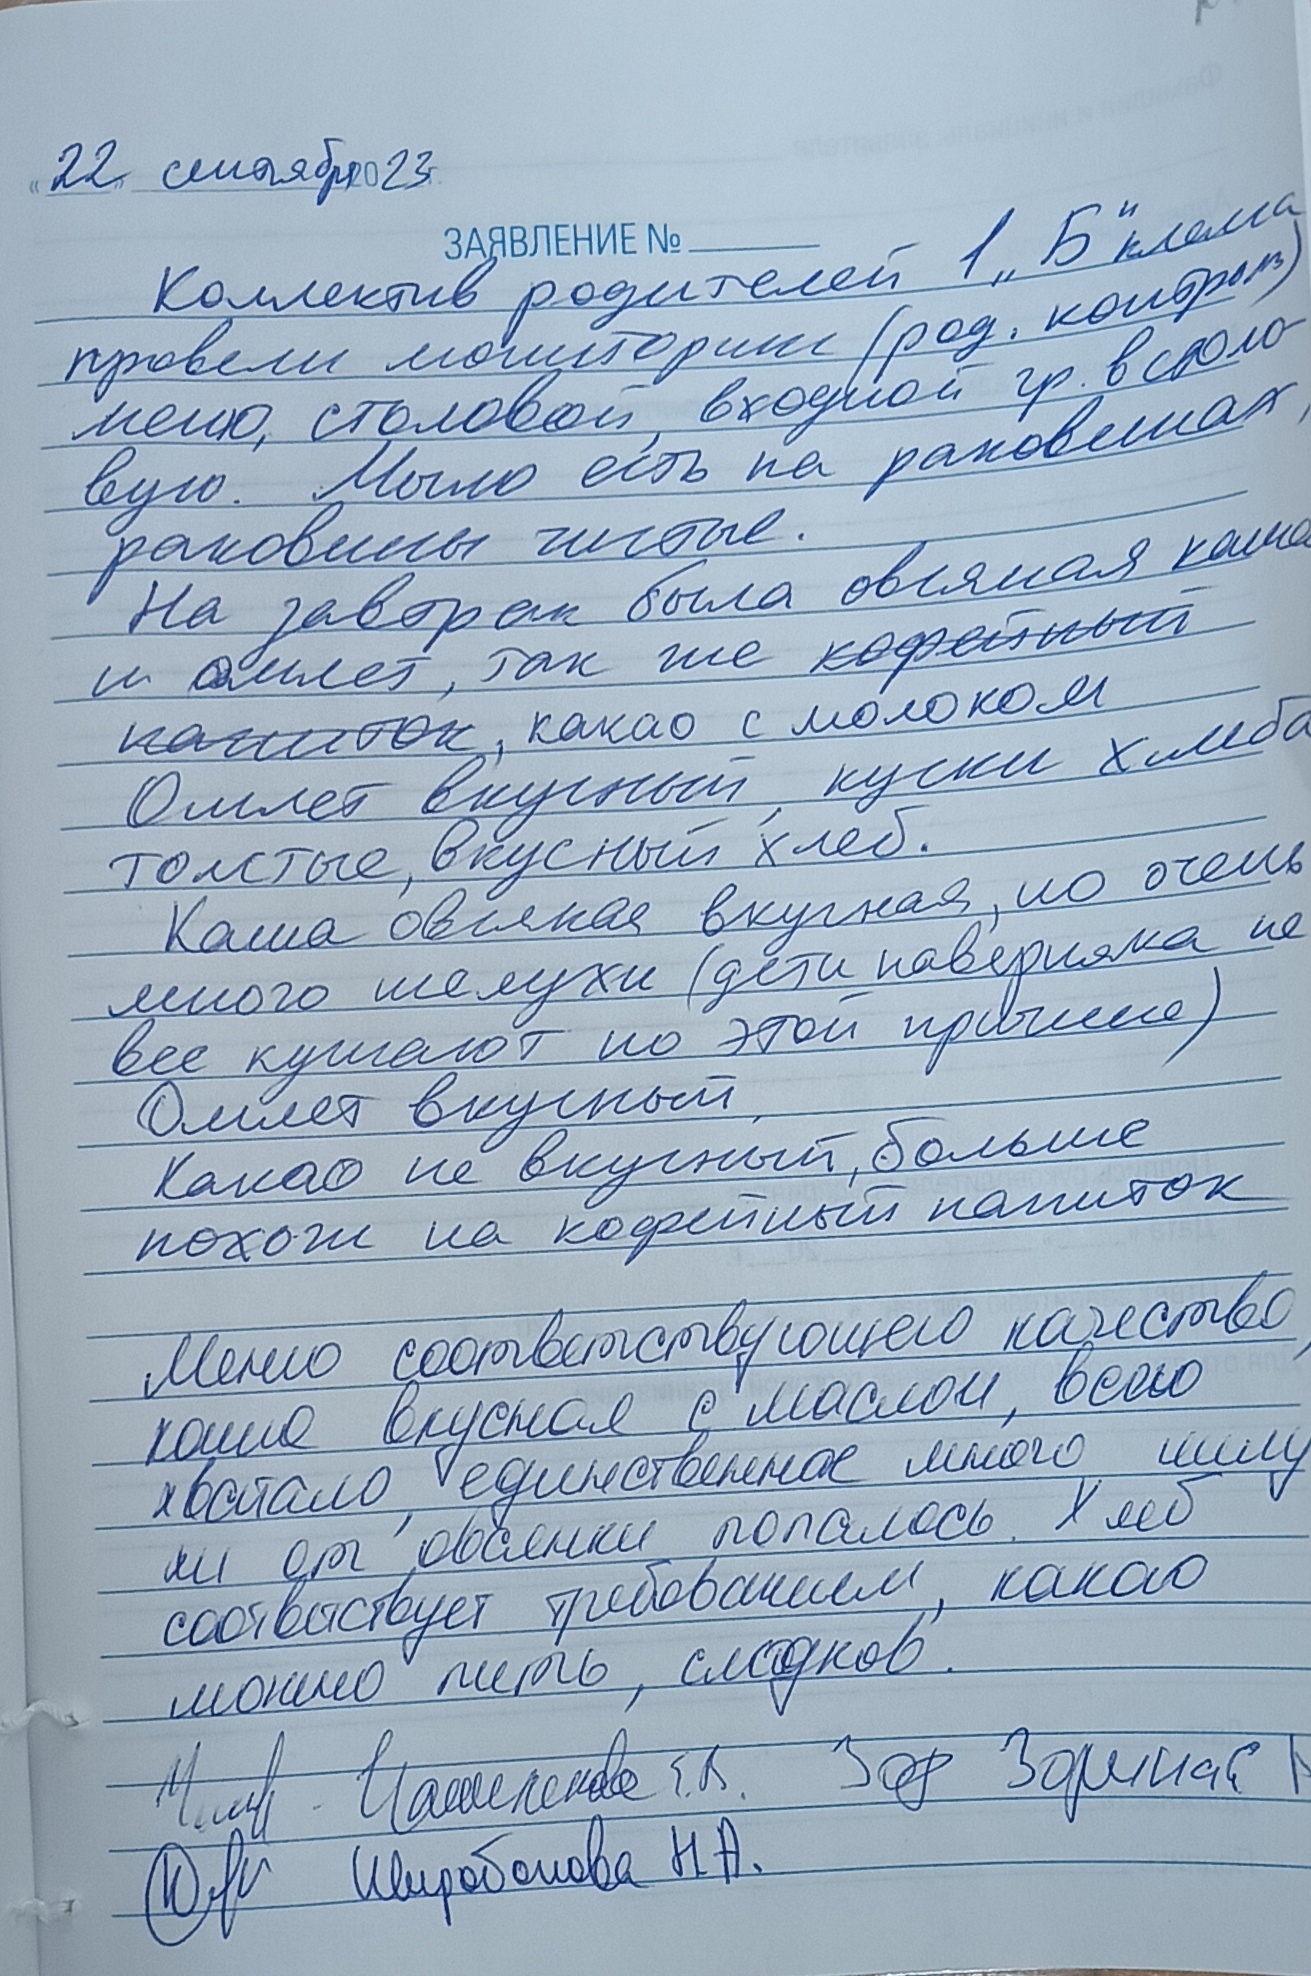 «22» сентября 2023г.
ЗАЯВЛЕНИЕ №
Коллектив родителей 1 „Б" класса
провели мониторинг (род. контроль)
меню, столовой, входной гр. в столо-
вую. Мыло есть на раковинах,
раковины чистые.
На завтрак была овсяная каша
и омлет, так же кофейный
напиток, какао с молоком
Омлет вкусный, куски хлеба
толстые, вкусный хлеб.
Каша овсяная вкусная, но очень
много шелухи (дети наверняка не
все кушают по этой причине)
Омлет вкусный,
Какао не вкусный, больше
похож на кофейный напиток
Меню соответствующего качество,
каша вкусная с маслом, всего
хватало, единственное много шилу
хи от овсянки попалось. Хлеб
соответствует требованием, какао
можно пить, сладков.
Широбокова Н.А.